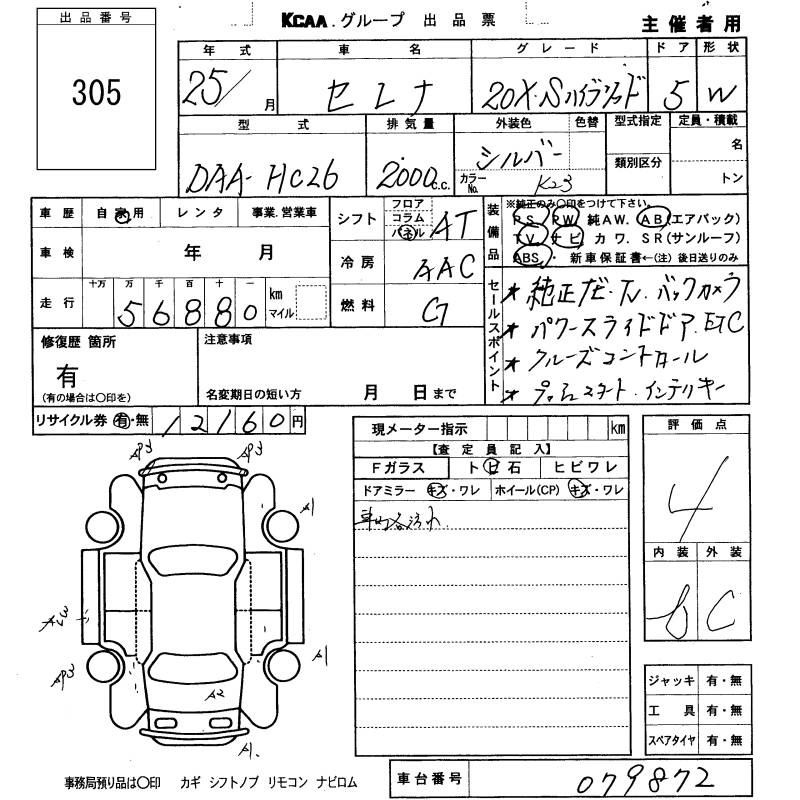 出品番号
305
KCAA.グループ 出品票
主催者用
年式 車名 グレード ドア 形状
25/ 月 セレナ 20X・Sハイブリッド 5 W
型式 排気量 外装色 色替 型式指定 定員・積載
DAA-HC26 2000 c.c. シルバー 名
カラーNo. K23 類別区分 トン
車歴 自家用 レンタ 事業.営業車
車検 年 月
走行 十万 万 千 百 十 一
56880 km マイル
シフト フロア コラム パネル AT
冷房 AAC
燃料 G
装備品 ※純正のみ〇印をつけて下さい。
P.S. P.W. 純A.W. A.B.(エアバック)
T.V. ナビ カワ. S.R(サンルーフ)
A.B.S. ・ 新車保証書←(注)後日送りのみ
セールスポイント
★ 純正ナビ.TV.バックカメラ
★ パワースライドドア.ETC
★ クルーズコントロール
★ プッシュスタート.インテリキー
修復歴 箇所 注意事項
有
(有の場合は〇印を) 名変期日の短い方 月 日まで
リサイクル券 有・無 12160円
現メーター指示 km
【査定員記入】
Fガラス トビ石 ヒビワレ
ドアミラー キズ・ワレ ホイール(CP) キズ・ワレ
車内各汚れ.
評価点
4
内装 外装
B C
AP3 AP3
A1
A1
AP3
A2
A1.
ジャッキ 有・無
工具 有・無
スペアタイヤ 有・無
事務局預り品は〇印 カギ シフトノブ リモコン ナビロム
車台番号 079872